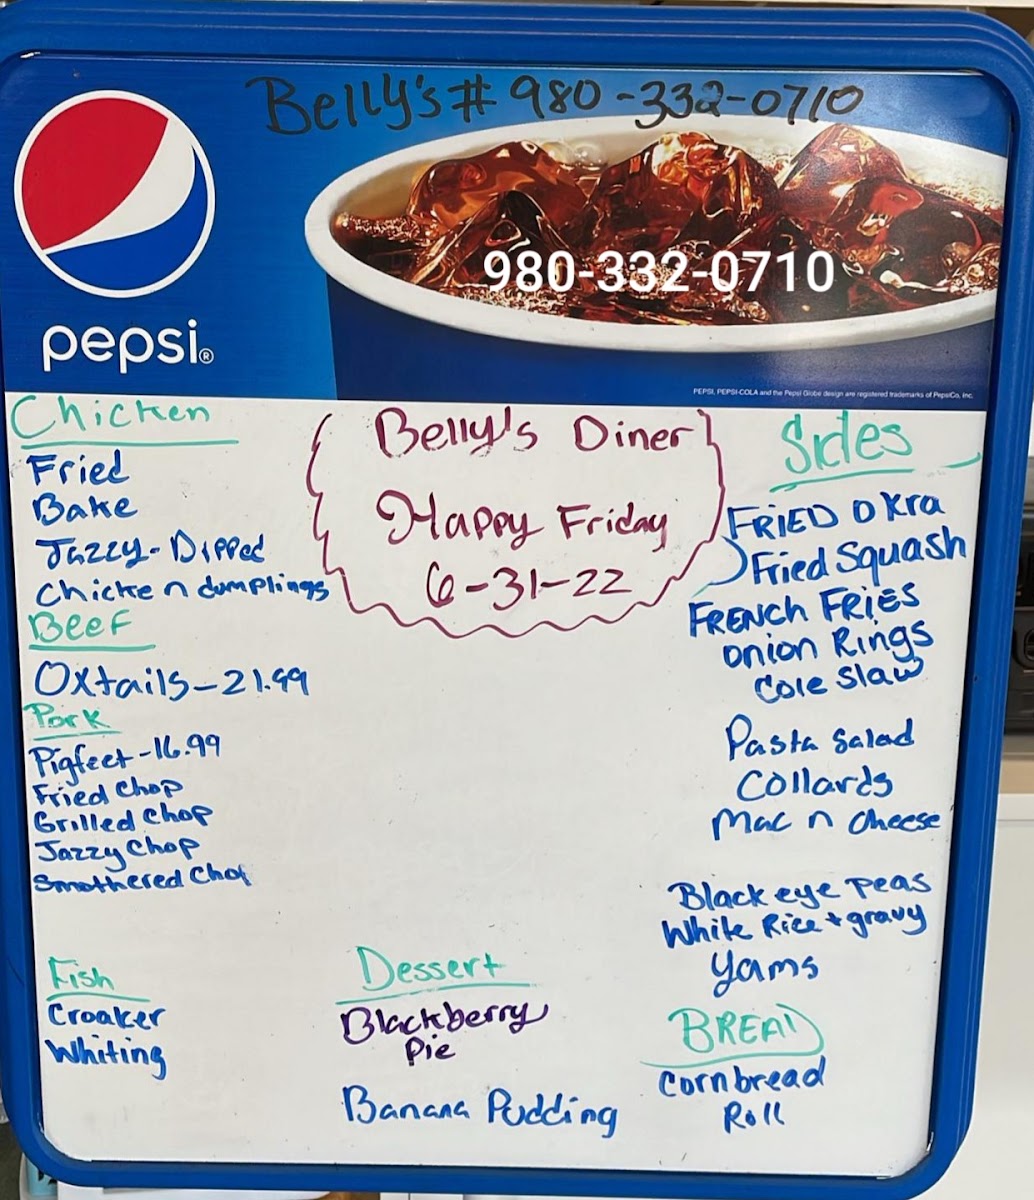 Belly's # 980-332-0710
980-332-0710
pepsi®
PEPSI, PEPSI-COLA and the Pepsi Globe design are registered trademarks of PepsiCo, Inc.
Chicken
Fried
Bake
Jazzy-Dipped
Chicken dumplings
Beef
Oxtails-21.99
Pork
Pigfeet-16.99
Fried Chop
Grilled Chop
Jazzy Chop
Smothered Chop
Fish
Croaker
Whiting
Belly's Diner
Happy Friday
6-31-22
Dessert
Blackberry
Pie
Banana Pudding
Sides
FRIED Okra
Fried Squash
FRENCH FRIES
Onion Rings
Cole Slaw
Pasta Salad
Collards
Mac n Cheese
Black eye peas
White Rice + gravy
Yams
BREAD
Cornbread
Roll